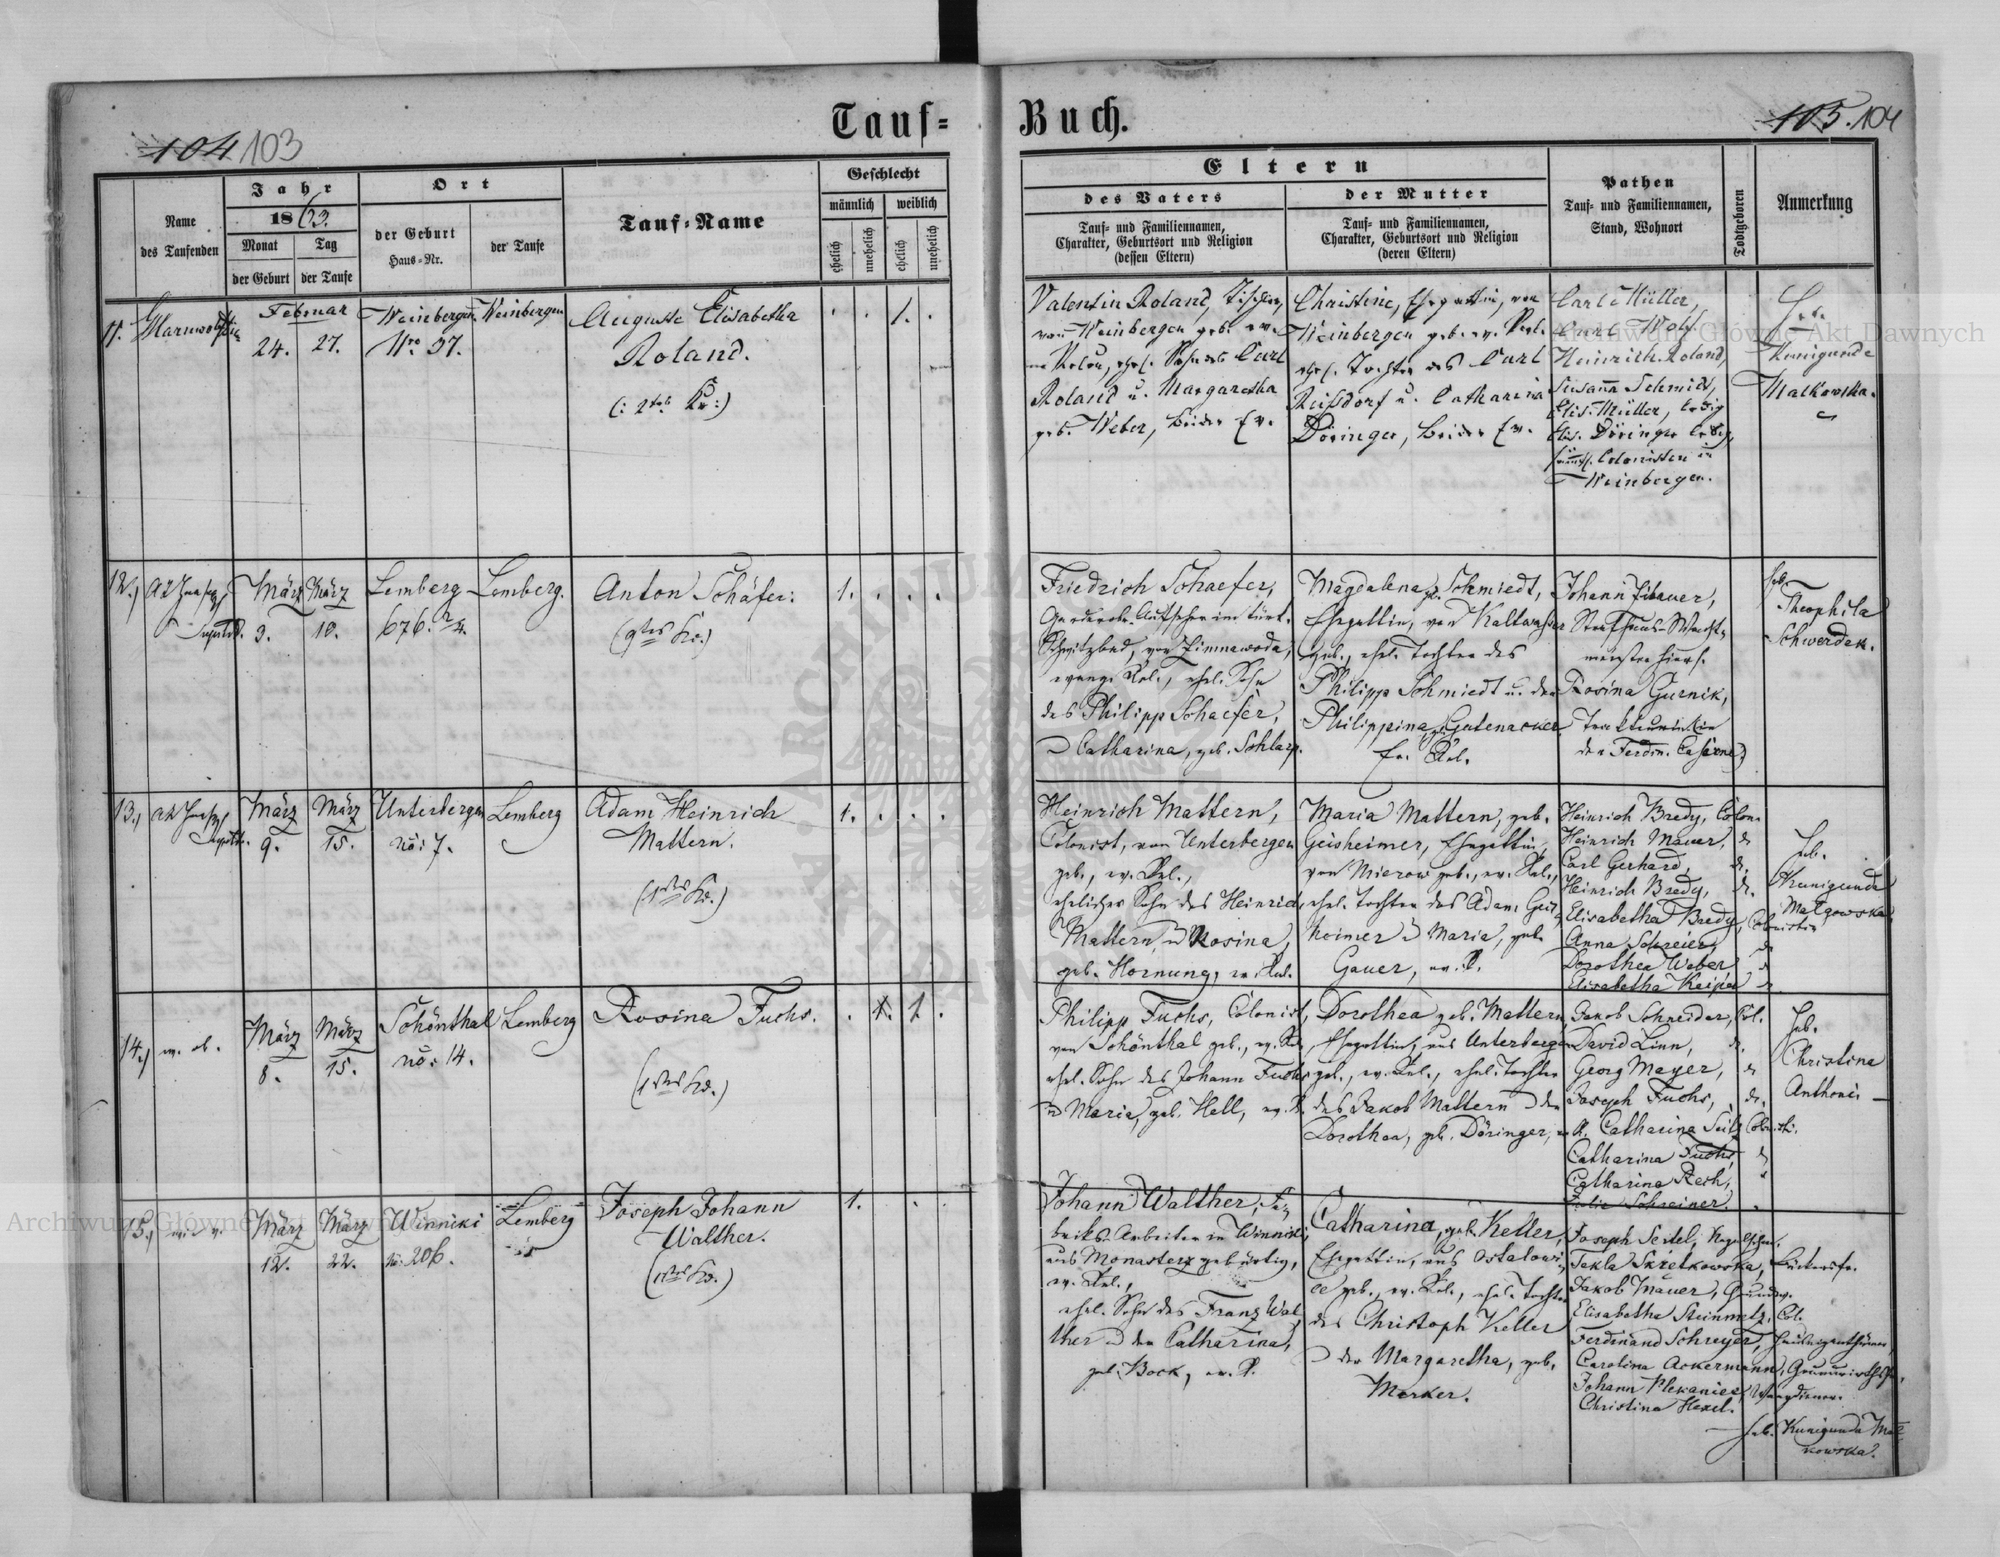 Tauf-
Buch.
104 103
105. 104
Name
des Taufenden
Jahr
1863.
Monat
Tag
der Geburt
der Taufe
Ort
der Geburt
Haus-Nr.
der Taufe
Tauf-Name
Geschlecht
männlich
weiblich
ehelich
unehelich
ehelich
unehelich
Eltern
des Vaters
Tauf- und Familiennamen,
Charakter, Geburtsort und Religion
(dessen Eltern)
der Mutter
Tauf- und Familiennamen,
Charakter, Geburtsort und Religion
(deren Eltern)
Pathen
Tauf- und Familiennamen,
Stand, Wohnort
Todtgeboren
Anmerkung
11.
Februar
24. 27.
Weinbergen
Nro 37.
Weinbergen
Auguste Elisabetha
Roland.
(: 2tes K :)
1.
Valentin Roland,
von Weinbergen geb. ev.
ehel. Sohn des Carl
Roland u. Margaretha
geb. Weber, beide Ev.
Christine, Ehegattin, von
Weinbergen geb. ev.
ehel. Tochter des Carl
Reissdorf u. Catharina
Döringer, beide Ev.
Carl Müller,
Carl Wolf,
Heinrich Roland,
Susanna Schmidt,
Elis. Müller, ledig
Elis. Döringer ledig,
sämtl. Colonisten in
Weinbergen.
Heb.
Kunigunde
Malkowska.
12.)
März
9.
März
10.
Lemberg
676. 2/4.
Lemberg.
Anton Schäfer.
(9tes Kd.)
1.
Friedrich Schaefer,
Garderobe-Aufseher im türk.
Schwitzbad, von Zimnawoda,
evang. Rel., ehel. Sohn
des Philipp Schaefer,
Catharina, geb. Schlarp.
Magdalena g. Schmiedt,
Ehegattin, von Kaltwasser
geb., ehel. Tochter des
Philipp Schmiedt u. der
Philippina g. Gutenacker
Ev. Rel.
Johann
Strafhaus-Wacht-
meister hiers.
Rosina Gurnik,
der Ferdin. Caserne)
Heb.
Theophila
Schwerdek.
13.)
März
9.
März
15.
Unterbergen
no: 7.
Lemberg
Adam Heinrich
Mattern.
(1tes Kd.)
1.
Heinrich Mattern,
Colonist, von Unterbergen
geb., ev. Rel.,
ehelicher Sohn des Heinrich
Mattern u Rosina,
geb. Hornung, ev. Rel.
Maria Mattern, geb.
Geisheimer, Ehegattin,
von Mierow geb., ev. Rel.,
ehel. Tochter des Adam Geis-
heimer u Maria, geb.
Gauer, ev. R.
Heinrich Bredy, Colon.
Heinrich Mauer,
Carl Gerhard,
Heinrich Bredy,
Elisabetha Bredy, Colonistin
Anna Schreier,
Dorothea Weber
Elisabetha Keiper
Heb.
Kunigunda
Małkowska
14.)
w. ob.
März
8.
März
15.
Schönthal
no: 14.
Lemberg
Rosina Fuchs.
(1tes Kd.)
1. 1.
Philipp Fuchs, Colonist,
von Schönthal geb., ev. Rel.
ehel. Sohn des Johann Fuchs
u Maria, geb. Hell, ev. R.
Dorothea geb. Mattern,
Ehegattin, aus Unterbergen
geb., ev. Rel., ehel. Tochter
des Jakob Mattern u der
Dorothea, geb. Döringer, ev. R.
Jakob Schneider, Col.
David Linn,
Georg Mayer,
Joseph Fuchs,
Catharina Seitz Colonisti.
Catharina Fuchs,
Catharina Rech,
Julie Schreiner.
Heb.
Christina
Anthoni
15.)
März
12.
März
22.
Winniki
no. 206.
Lemberg
Joseph Johann
Walther.
(1tes Kd.)
1.
Johann Walther, Fa-
briks-Arbeiter in Winniki,
aus Monasterz gebürtig,
ev. Rel.,
ehel. Sohn des Franz Wal-
ther u der Catharina,
geb. Bock, ev. R.
Catharina, geb. Keller,
Ehegattin, aus Ostalowi-
ce geb., ev. Rel., ehel. Tochter
des Christoph Keller
u der Margaretha, geb.
Merker.
Joseph Seitel,
Tekla Skretkowska,
Jakob Mauer,
Elisabetha Steinmetz, Col.
Ferdinand Schreyer,
Carolina Ackermann,
Johann Plekaniec,
Christina Hexel.
Heb. Kunigunda Mał-
kowska.
Archiwum Główne Akt Dawnych
Archiwum Główne Akt Dawnych